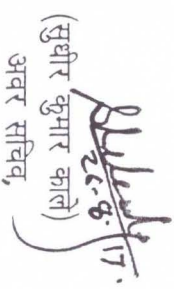 26-8-17
(सुधीर कुमार काले)
अवर सचिव,